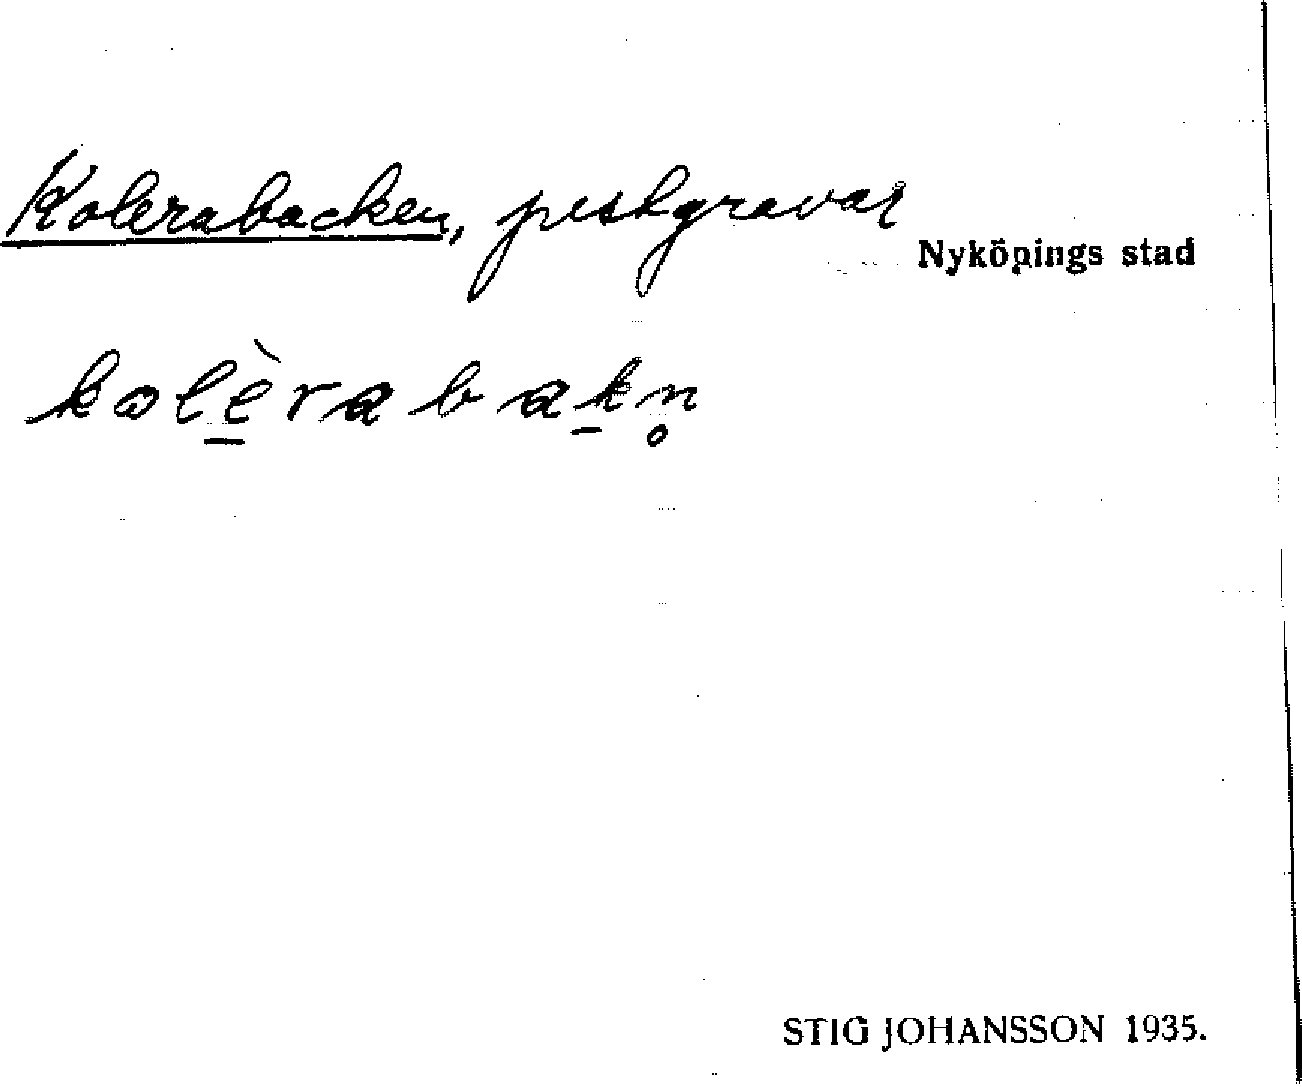 Kolerabacken, pestgravar
Nyköpings stad
kolèrabakn̥
STIG JOHANSSON 1935.